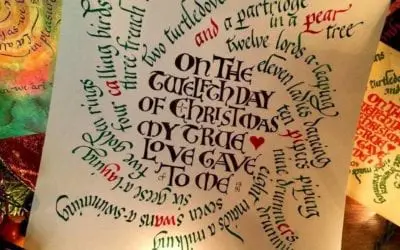 On the
twelfth day
of Christmas
my true
love gave
to me
twelve lords a leaping
eleven ladies dancing
ten pipers piping
nine drummers drumming
eight maids a milking
seven swans a-swimming
six geese a'laying
five golden rings
four calling birds
three french
two turtledoves
and
a partridge
in a pear
tree